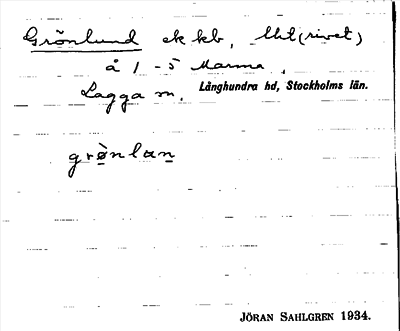 Grönlund ek kb, Utt(rivet)
å 1-5 Marma,
Lagga sn, Långhundra hd, Stockholms län.
grø̀nlan
JÖRAN SAHLGREN 1934.